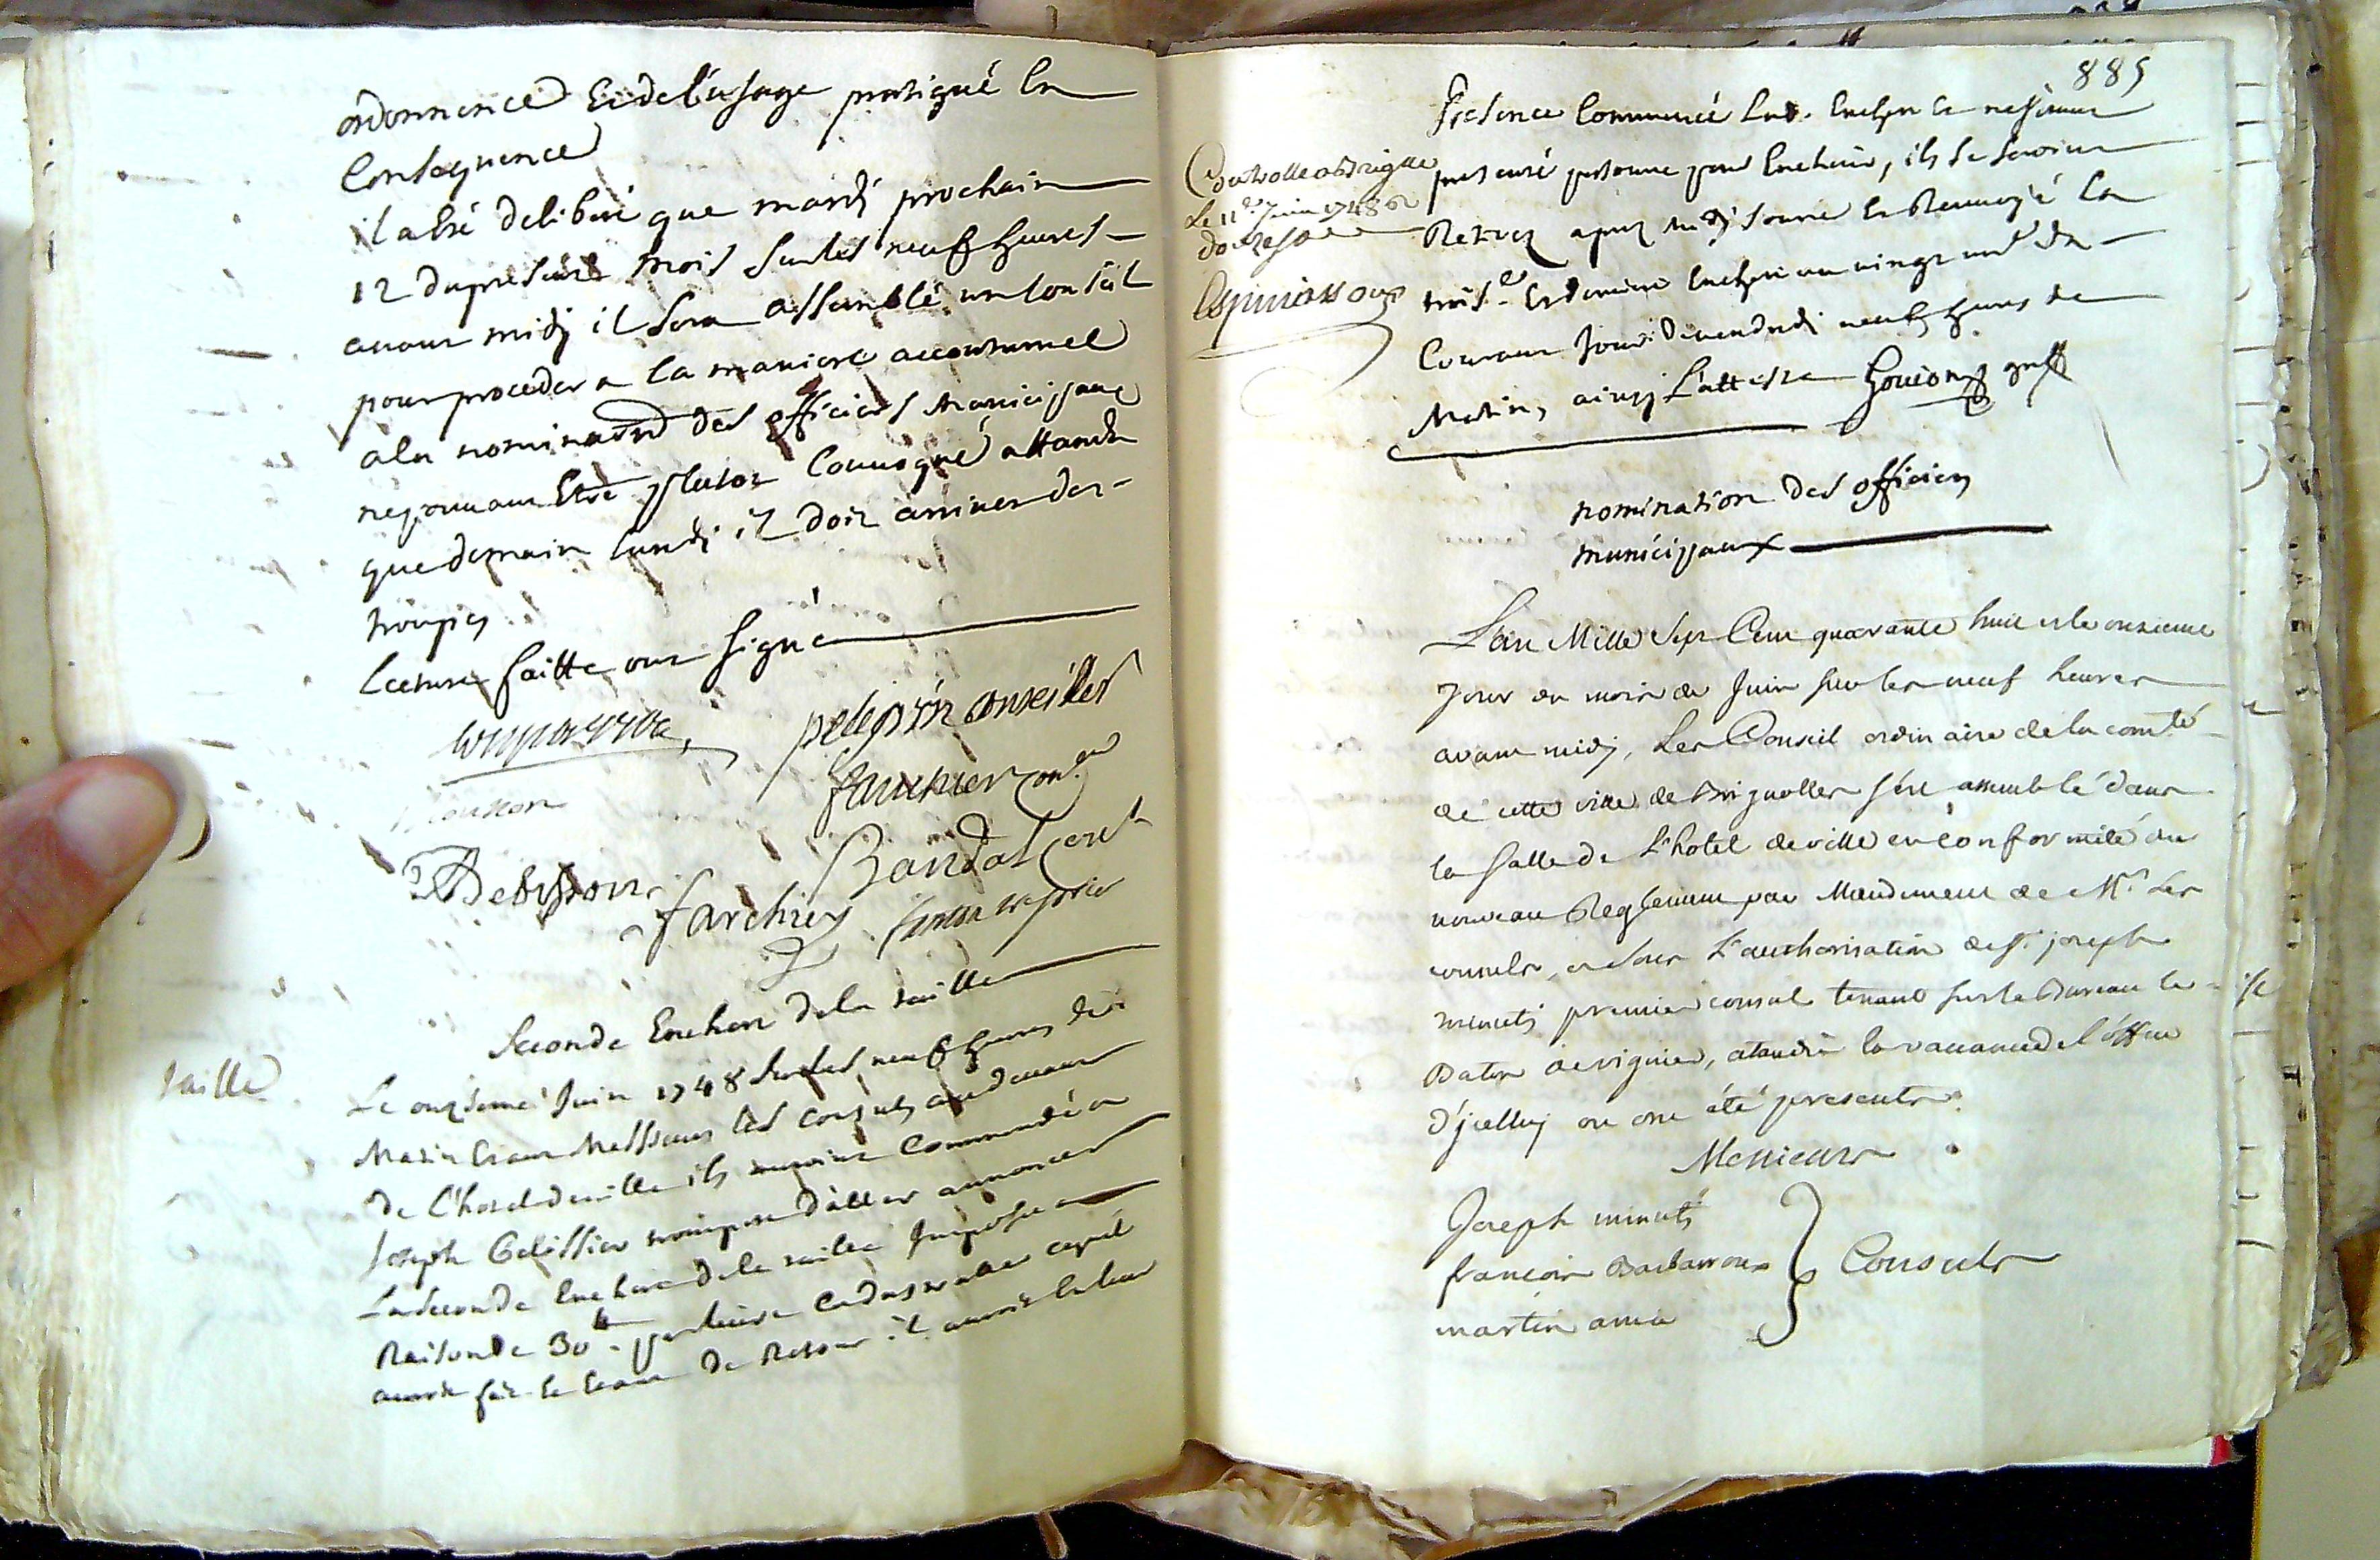 ordonnance Et de l'usage pratiqué En
Consequence
il a Eté deliberé que mardi prochain
12 du present mois sur les neuf heures
avant midj il sera assemblé un conseil
pour proceder a la maniere accoutumée
a la nomination des officiers Municipaux
ne pouvant Etre plutot Convoqué attandu
que demain lundj il doit arriver des
troupes
Lecture faitte ont signé
pelegrin conseiller
fauchier con.er
Mouton
Debisson
Bandol con.er
farchier
Seconde Enchere de la taille
taille
Le onzieme Juin 1748 sur les neuf heures du
Matin Etant Messieurs les consuls au devant
de L'hotel de ville ils auroint Commandé a
Joseph Gelissier trompete d'aller annoncer
La seconde Enchere de la taille Imposée a
Raison de 30 ₶ par livre cadastralle ce qu'il
auroit fait et Etant de Retour il auroit en leur
885
Presence Commencé Lad. Enchere et ne s'etant
presenté personne pour Encherir, ils se seroint
Retirez apres midj sonné et Renvoyé La
trois.e Et derniere Enchere au vingt un.e du
Courant jour de vendredi neuf heures du
Matin, ainsj L'atteste Goujon greff
Controllé a Brignolle
Le 11.e Juin 1748 R
douze sols
Espinassoux
nomination des officiers
municipaux
L'an Mille Sept Cent quarante huit et le onzieme
Jour du mois de Juin sur les neuf heures
avant midj, Le Conseil ordinaire de la com.té
de cette ville de Brignolles s'est assemblé dans
la salle de L'hotel de ville en conformité du
nouveau Reglement par Mandement de M.rs Les
consuls, et sous L'authorisation de s.r joseph
minuti premier consul tenant sur le Bureau le
Baton de viguier, attandu la vacance de l'office
d'jcelluj ou ont été presents
Messieurs
Joseph minuti
francois Barbarroux } Consuls
martin amic